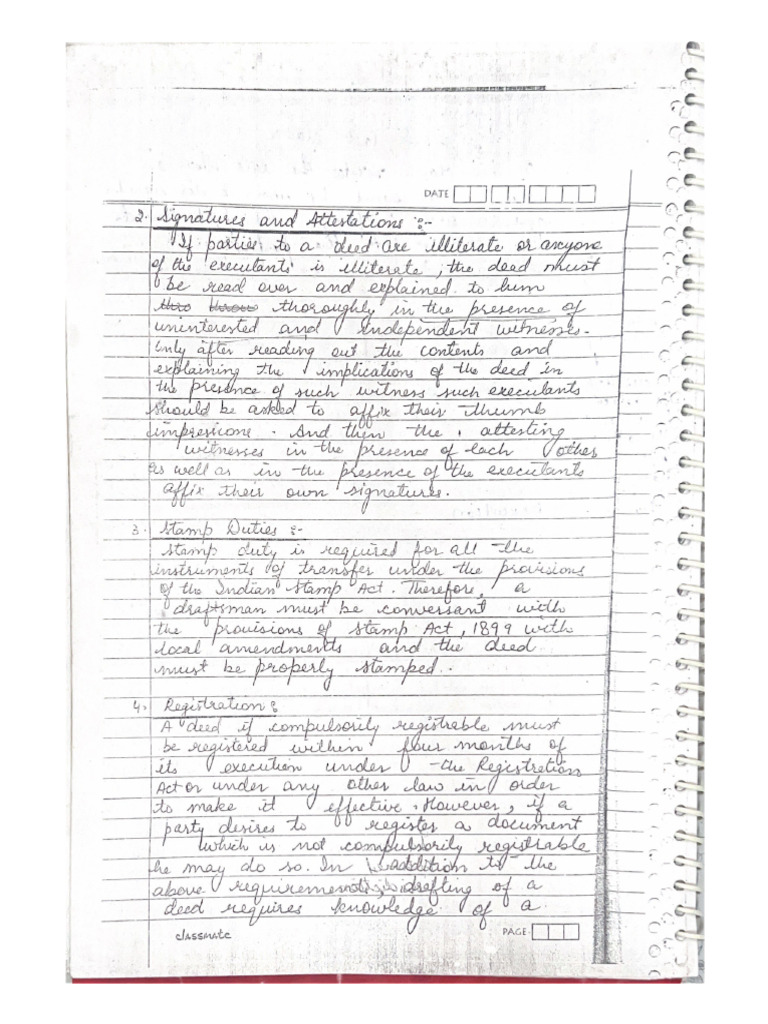 DATE
2. Signatures and Attestations :-
If parties to a deed are illiterate or anyone
of the executants is illiterate, the deed must
be read over and explained to him
thro throu thoroughly in the presence of
uninterested and Independent witnesses.
Only after reading out the contents and
explaining the implications of the deed in
the presence of such witness such executants
should be asked to affix their thumb
impresions. And then the attesting
witnesses in the presence of each other
as well as in the presence of the executants
affix their own signatures.
3. Stamp Duties :-
Stamp duty is required for all the
instruments of transfer under the provisions
of the Indian Stamp Act. Therefore, a
draftsman must be conversant with
the provisions of Stamp Act, 1899 with
local amendments and the deed
must be properly stamped.
4. Registration :
A deed if compulsorily registrable must
be registered within four months of
its execution under the Registration
Act or under any other law in order
to make it effective. However, if a
party desires to register a document
which is not compulsorily registrable
he may do so. In addition to the
above requirements drafting of a
deed requires knowledge of a
classmate
PAGE